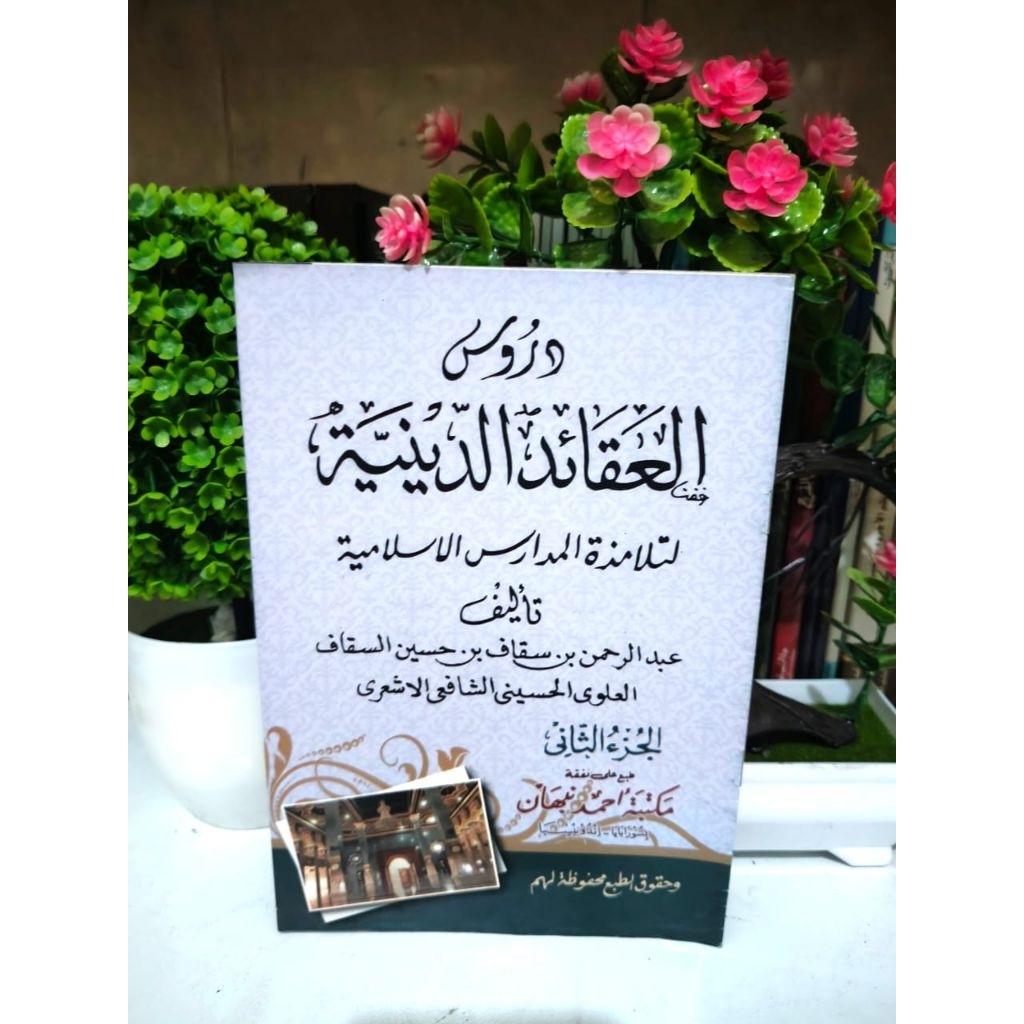 دُرُوس
العَقَائد الدّينيَّة
لتلامذة المدارس الاسلامية
تأليف
عبد الرحمن بن سقاف بن حسين السقاف
العلوى الحسينى الشافعى الاشعرى
الجُزءُ الثّانى
طبع على نفقة
مكتبة احمد نبهان
سورابايا - إندونيسيا
وحقوق الطبع محفوظة لهم